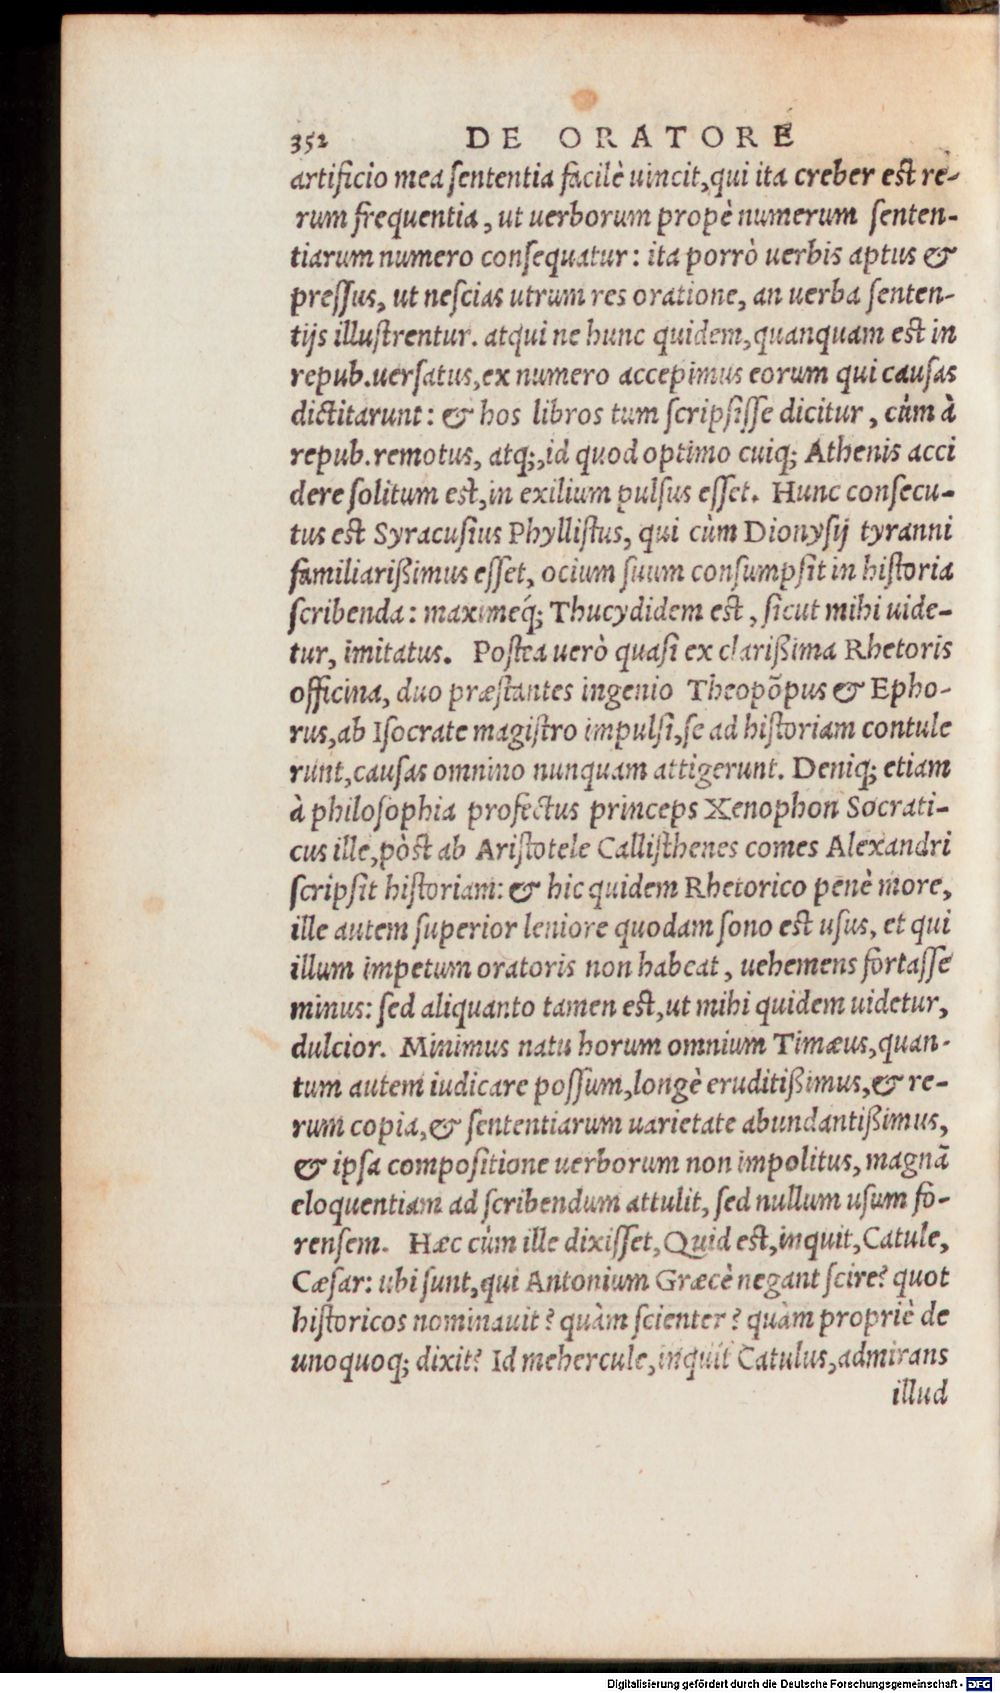 352 DE ORATORE
artificio mea sententia facilè uincit, qui ita creber est re-
rum frequentia, ut uerborum propè numerum senten-
tiarum numero consequatur: ita porrò uerbis aptus &
pressus, ut nescias utrum res oratione, an uerba senten-
tijs illustrentur. atqui ne hunc quidem, quanquam est in
repub. uersatus, ex numero accepimus eorum qui causas
dictitarunt: & hos libros tum scripsisse dicitur, cùm à
repub. remotus, atq;, id quod optimo cuiq; Athenis acci
dere solitum est, in exilium pulsus esset. Hunc consecu-
tus est Syracusius Phyllistus, qui cùm Dionysij tyranni
familiarißimus esset, ocium suum consumpsit in historia
scribenda: maximéq; Thucydidem est, sicut mihi uide-
tur, imitatus. Postea uerò quasi ex clarißima Rhetoris
officina, duo præstantes ingenio Theopõpus & Epho-
rus, ab Isocrate magistro impulsi, se ad historiam contule
runt, causas omnino nunquam attigerunt. Deniq; etiam
à philosophia profectus princeps Xenophon Socrati-
cus ille, pòst ab Aristotele Callisthenes comes Alexandri
scripsit historiam: & hic quidem Rhetorico penè more,
ille autem superior leniore quodam sono est usus, et qui
illum impetum oratoris non habeat, uehemens fortasse
minus: sed aliquanto tamen est, ut mihi quidem uidetur,
dulcior. Minimus natu horum omnium Timæus, quan-
tum autem iudicare possum, longè eruditißimus, & re-
rum copia, & sententiarum uarietate abundantißimus,
& ipsa compositione uerborum non impolitus, magnā
eloquentiam ad scribendum attulit, sed nullum usum fo-
rensem. Hæc cùm ille dixisset, Quid est, inquit, Catule,
Cæsar: ubi sunt, qui Antonium Græcè negant scire? quot
historicos nominauit? quàm scienter? quàm propriè de
unoquoq; dixit? Id mehercule, inquit Catulus, admirans
illud
Digitalisierung gefördert durch die Deutsche Forschungsgemeinschaft - DFG